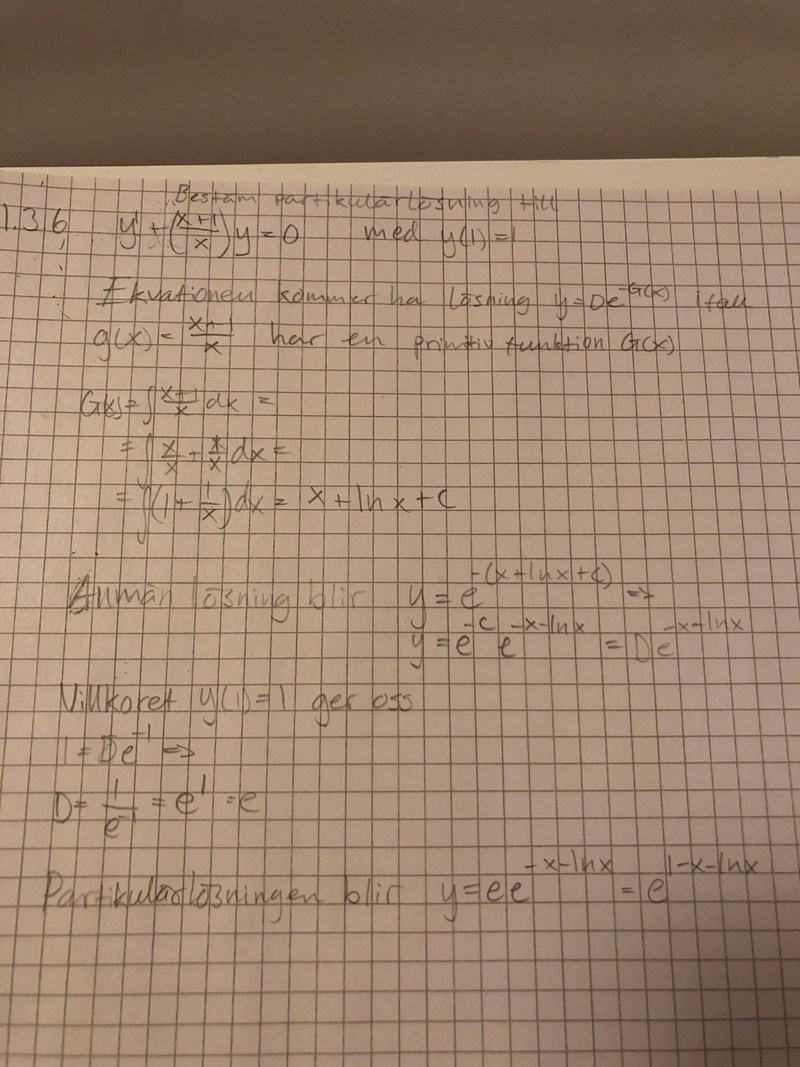 Bestäm partikulärlösning till
1.3.6, y' + (x+1/x)y = 0 med y(1) = 1
Ekvationen kommer ha lösning y = De^-G(x) ifall
g(x) = x+1/x har en primitiv funktion G(x)
G(x) = ∫ x+1/x dx =
= ∫ x/x + 1/x dx =
= ∫(1 + 1/x)dx = x + ln x + C
Allmän lösning blir y = e^-(x+ln x+C) =>
y = e^-C e^-x-ln x = De^-x-ln x
Villkoret y(1) = 1 ger oss
1 = De^-1 =>
D = 1/e^-1 = e^1 = e
Partikulärlösningen blir y = ee^-x-ln x = e^1-x-ln x